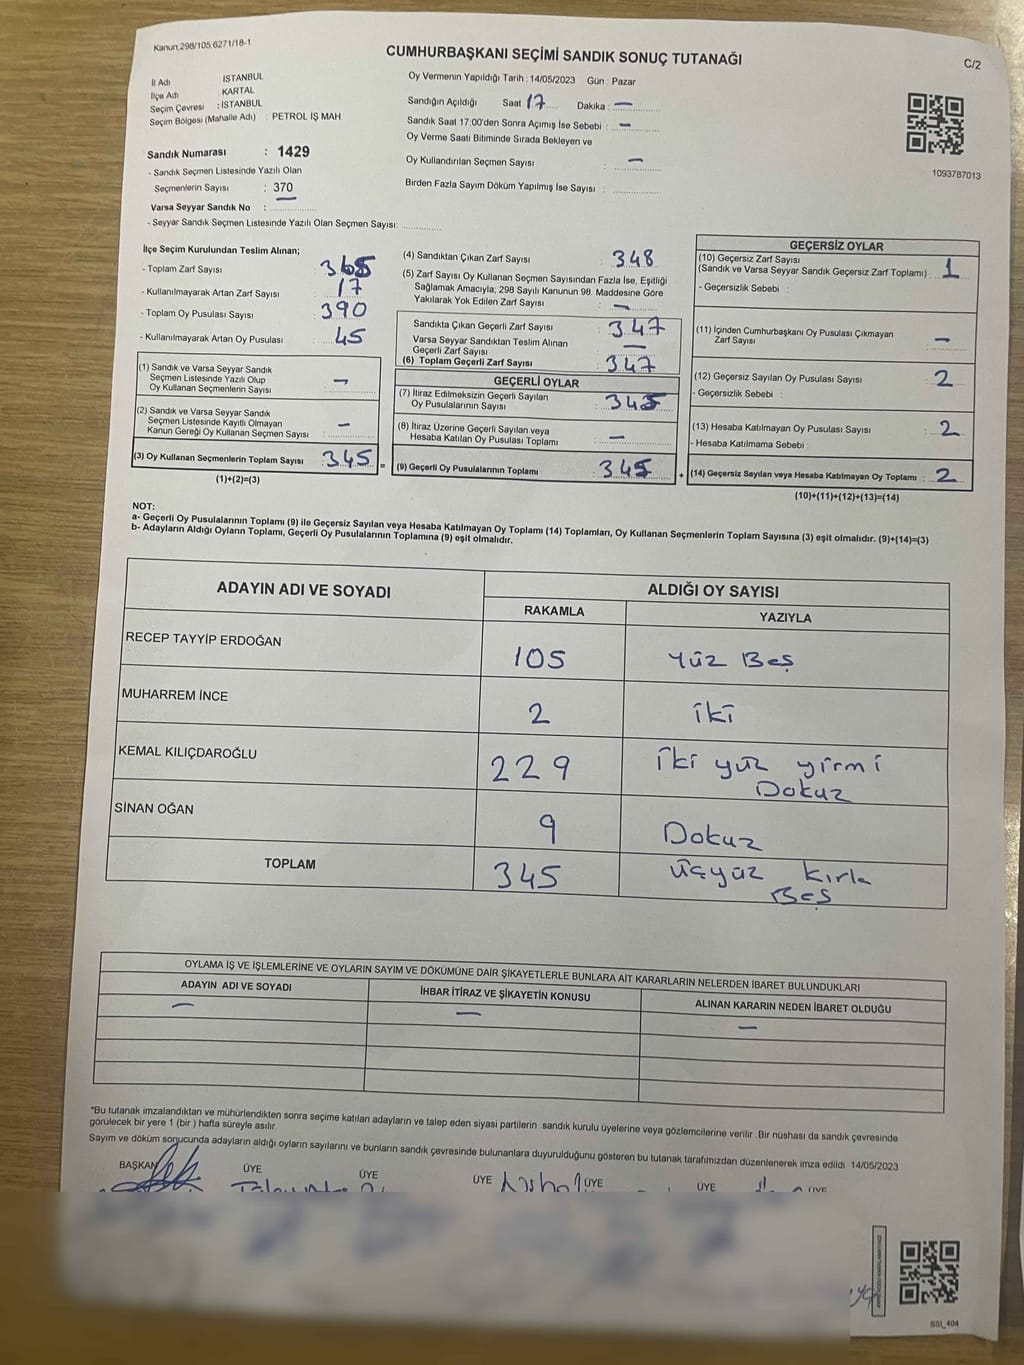 Kanun,298/105,6271/18-1
CUMHURBAŞKANI SEÇİMİ SANDIK SONUÇ TUTANAĞI
C/2
İl Adı İSTANBUL
İlçe Adı KARTAL
Seçim Çevresi : İSTANBUL
Seçim Bölgesi (Mahalle Adı) : PETROL İŞ MAH
Sandık Numarası : 1429
- Sandık Seçmen Listesinde Yazılı Olan
Seçmenlerin Sayısı : 370
Varsa Seyyar Sandık No :
- Seyyar Sandık Seçmen Listesinde Yazılı Olan Seçmen Sayısı:
Oy Vermenin Yapıldığı Tarih : 14/05/2023 Gün : Pazar
Sandığın Açıldığı Saat 17 Dakika : —
Sandık Saat 17:00'den Sonra Açımış İse Sebebi : —
Oy Verme Saati Bitiminde Sırada Bekleyen ve
Oy Kullandırılan Seçmen Sayısı : —
Birden Fazla Sayım Döküm Yapılmış İse Sayısı :
1093787013
İlçe Seçim Kurulundan Teslim Alınan;
- Toplam Zarf Sayısı 365
- Kullanılmayarak Artan Zarf Sayısı : 17
- Toplam Oy Pusulası Sayısı : 390
- Kullanılmayarak Artan Oy Pusulası : 45
(1) Sandık ve Varsa Seyyar Sandık
Seçmen Listesinde Yazılı Olup
Oy Kullanan Seçmenlerin Sayısı : —
(2) Sandık ve Varsa Seyyar Sandık
Seçmen Listesinde Kayıtlı Olmayan
Kanun Gereği Oy Kullanan Seçmen Sayısı : —
(3) Oy Kullanan Seçmenlerin Toplam Sayısı : 345 =
(1)+(2)=(3)
(4) Sandıktan Çıkan Zarf Sayısı : 348
(5) Zarf Sayısı Oy Kullanan Seçmen Sayısından Fazla İse, Eşitliği
Sağlamak Amacıyla; 298 Sayılı Kanunun 98. Maddesine Göre
Yakılarak Yok Edilen Zarf Sayısı : —
Sandıkta Çıkan Geçerli Zarf Sayısı : 347
Varsa Seyyar Sandıktan Teslim Alınan
Geçerli Zarf Sayısı : —
(6) Toplam Geçerli Zarf Sayısı : 347
GEÇERLİ OYLAR
(7) İtiraz Edilmeksizin Geçerli Sayılan
Oy Pusulalarının Sayısı : 345
(8) İtiraz Üzerine Geçerli Sayılan veya
Hesaba Katılan Oy Pusulası Toplamı : —
(9) Geçerli Oy Pusulalarının Toplamı : 345 +
GEÇERSİZ OYLAR
(10) Geçersiz Zarf Sayısı
(Sandık ve Varsa Seyyar Sandık Geçersiz Zarf Toplamı) : 1
- Geçersizlik Sebebi :
(11) İçinden Cumhurbaşkanı Oy Pusulası Çıkmayan
Zarf Sayısı : —
(12) Geçersiz Sayılan Oy Pusulası Sayısı : 2
- Geçersizlik Sebebi :
(13) Hesaba Katılmayan Oy Pusulası Sayısı : 2
- Hesaba Katılmama Sebebi :
(14) Geçersiz Sayılan veya Hesaba Katılmayan Oy Toplamı : 2
(10)+(11)+(12)+(13)=(14)
NOT:
a- Geçerli Oy Pusulalarının Toplamı (9) ile Geçersiz Sayılan veya Hesaba Katılmayan Oy Toplamı (14) Toplamları, Oy Kullanan Seçmenlerin Toplam Sayısına (3) eşit olmalıdır. (9)+(14)=(3)
b- Adayların Aldığı Oyların Toplamı, Geçerli Oy Pusulalarının Toplamına (9) eşit olmalıdır.
ADAYIN ADI VE SOYADI
ALDIĞI OY SAYISI
RAKAMLA YAZIYLA
RECEP TAYYİP ERDOĞAN 105 Yüz Beş
MUHARREM İNCE 2 İki
KEMAL KILIÇDAROĞLU 229 İki yüz yirmi
Dokuz
SİNAN OĞAN 9 Dokuz
TOPLAM 345 Üçyüz kırk
Beş
OYLAMA İŞ VE İŞLEMLERİNE VE OYLARIN SAYIM VE DÖKÜMÜNE DAİR ŞİKAYETLERLE BUNLARA AİT KARARLARIN NELERDEN İBARET BULUNDUKLARI
ADAYIN ADI VE SOYADI İHBAR İTİRAZ VE ŞİKAYETİN KONUSU ALINAN KARARIN NEDEN İBARET OLDUĞU
— — —
*Bu tutanak imzalandıktan ve mühürlendikten sonra seçime katılan adayların ve talep eden siyasi partilerin sandık kurulu üyelerine veya gözlemcilerine verilir. Bir nüshası da sandık çevresinde
görülecek bir yere 1 (bir ) hafta süreyle asılır.
Sayım ve döküm sonucunda adayların aldığı oyların sayılarını ve bunların sandık çevresinde bulunanlara duyurulduğunu gösteren bu tutanak tarafımızdan düzenlenerek imza edildi 14/05/2023
BAŞKAN ÜYE ÜYE ÜYE ÜYE ÜYE ÜYE
SSL_404